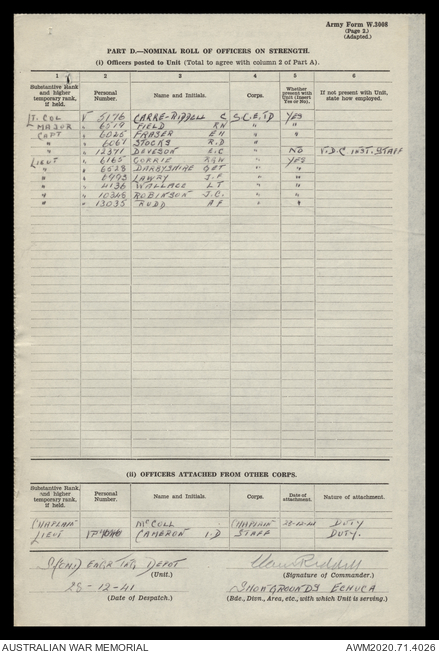 Army Form W.3008
(Page 2.)
(Adapted.)
PART D.—NOMINAL ROLL OF OFFICERS ON STRENGTH.
(i) Officers posted to Unit (Total to agree with column 2 of Part A).
1 2 3 4 5 6
Substantive Rank and higher temporary rank, if held. Personal Number. Name and Initials. Corps. Whether present with Unit (Insert Yes or No). If not present with Unit, state how employed.
LT. COL V 5176 CARRE-RIDDELL C S.C.E.T.D YES
MAJOR " FIELD R N " "
CAPT " 6025 FRASER E H " "
" " 6061 STOCKS R.D "
" " 12371 DEVESON E.C " NO V.D.C. INST. STAFF
LIEUT " 6165 GORRIE R G W " YES
" " 6528 DARBYSHIRE G E T " "
" " LAWRY J.F " "
" " 4136 WALLACE L T " "
" " 10345 ROBINSON J.C. " "
" " 13035 RUDD A F " "
(ii) OFFICERS ATTACHED FROM OTHER CORPS.
Substantive Rank and higher temporary rank, if held. Personal Number. Name and Initials. Corps. Date of attachment. Nature of attachment.
CHAPLAIN McCOLL CHAPLAIN DUTY
LIEUT CAMERON I-D STAFF DUTY.
ENGR TNG DEPOT
(Unit.) (Signature of Commander.)
28-12-41 SHOWGROUNDS ECHUCA
(Date of Despatch.) (Bde., Divn., Area, etc., with which Unit is serving.)
AUSTRALIAN WAR MEMORIAL AWM2020.71.4026